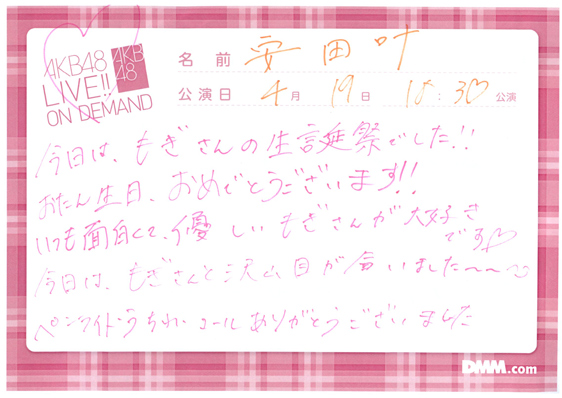 AKB48
LIVE!!
ON DEMAND
AKB
48
名前 安田叶
公演日 4月19日 18:30 公演
今日は、もぎさんの生誕祭でした!!
おたん生日、おめでとうございます!!
いつも面白くて、優しいもぎさんが大好き
です♡
今日は、もぎさんと沢山目が合いました~~
ペンライト・うちわ・コールありがとうございました
DMM.com